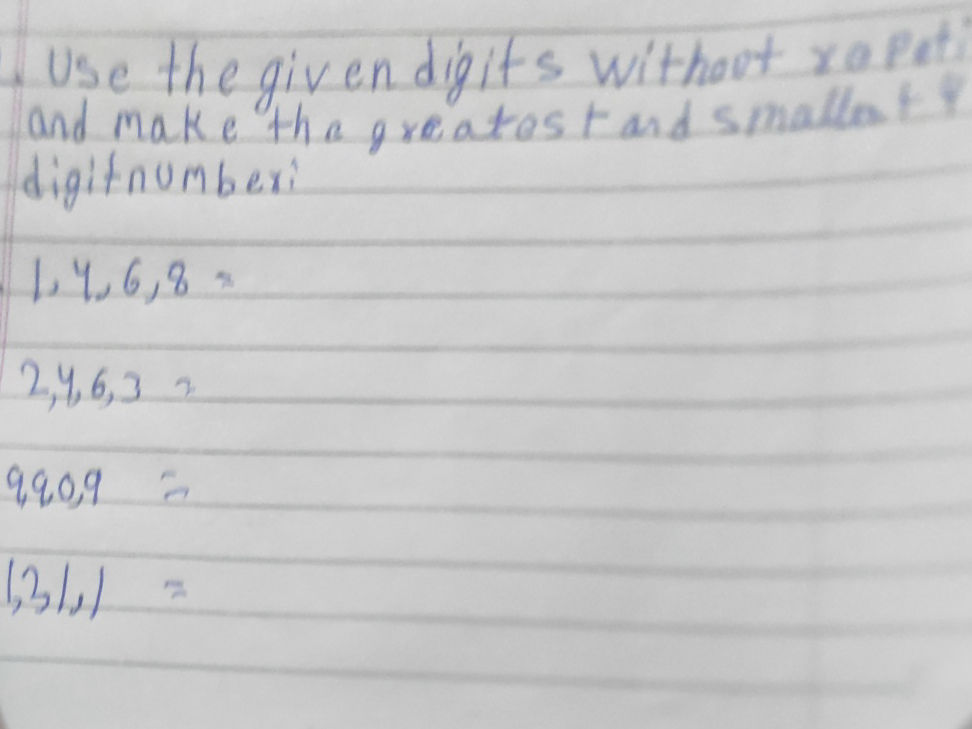 Use the given digits without
and make the greatest and smallest 4
digit number:
1, 4, 6, 8 =
2, 4, 6, 3 =
9, 9, 0, 9 =
1, 3, 1, 1 =